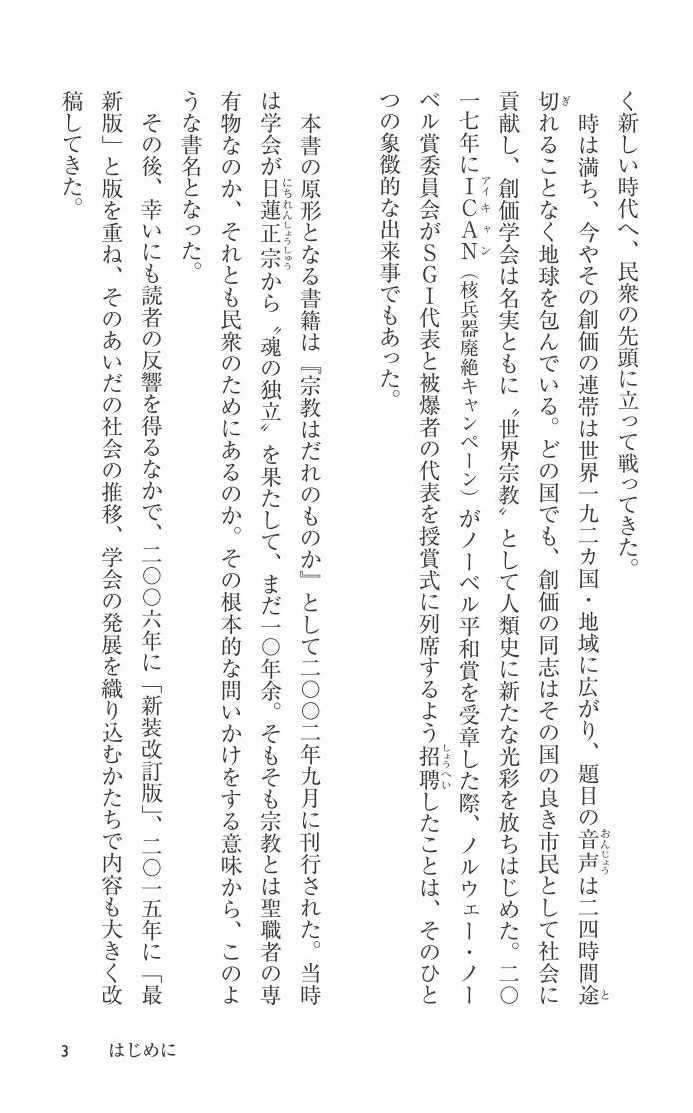 く新しい時代へ、民衆の先頭に立って戦ってきた。
時は満ち、今やその創価の連帯は世界一九二カ国・地域に広がり、題目の音声は二四時間途
切れることなく地球を包んでいる。どの国でも、創価の同志はその国の良き市民として社会に
貢献し、創価学会は名実ともに〝世界宗教〟として人類史に新たな光彩を放ちはじめた。二〇
一七年にＩＣＡＮ（核兵器廃絶キャンペーン）がノーベル平和賞を受章した際、ノルウェー・ノー
ベル賞委員会がＳＧＩ代表と被爆者の代表を授賞式に列席するよう招聘したことは、そのひと
つの象徴的な出来事でもあった。
本書の原形となる書籍は『宗教はだれのものか』として二〇〇二年九月に刊行された。当時
は学会が日蓮正宗から〝魂の独立〟を果たして、まだ一〇年余。そもそも宗教とは聖職者の専
有物なのか、それとも民衆のためにあるのか。その根本的な問いかけをする意味から、このよ
うな書名となった。
その後、幸いにも読者の反響を得るなかで、二〇〇六年に「新装改訂版」、二〇一五年に「最
新版」と版を重ね、そのあいだの社会の推移、学会の発展を織り込むかたちで内容も大きく改
稿してきた。
3 はじめに